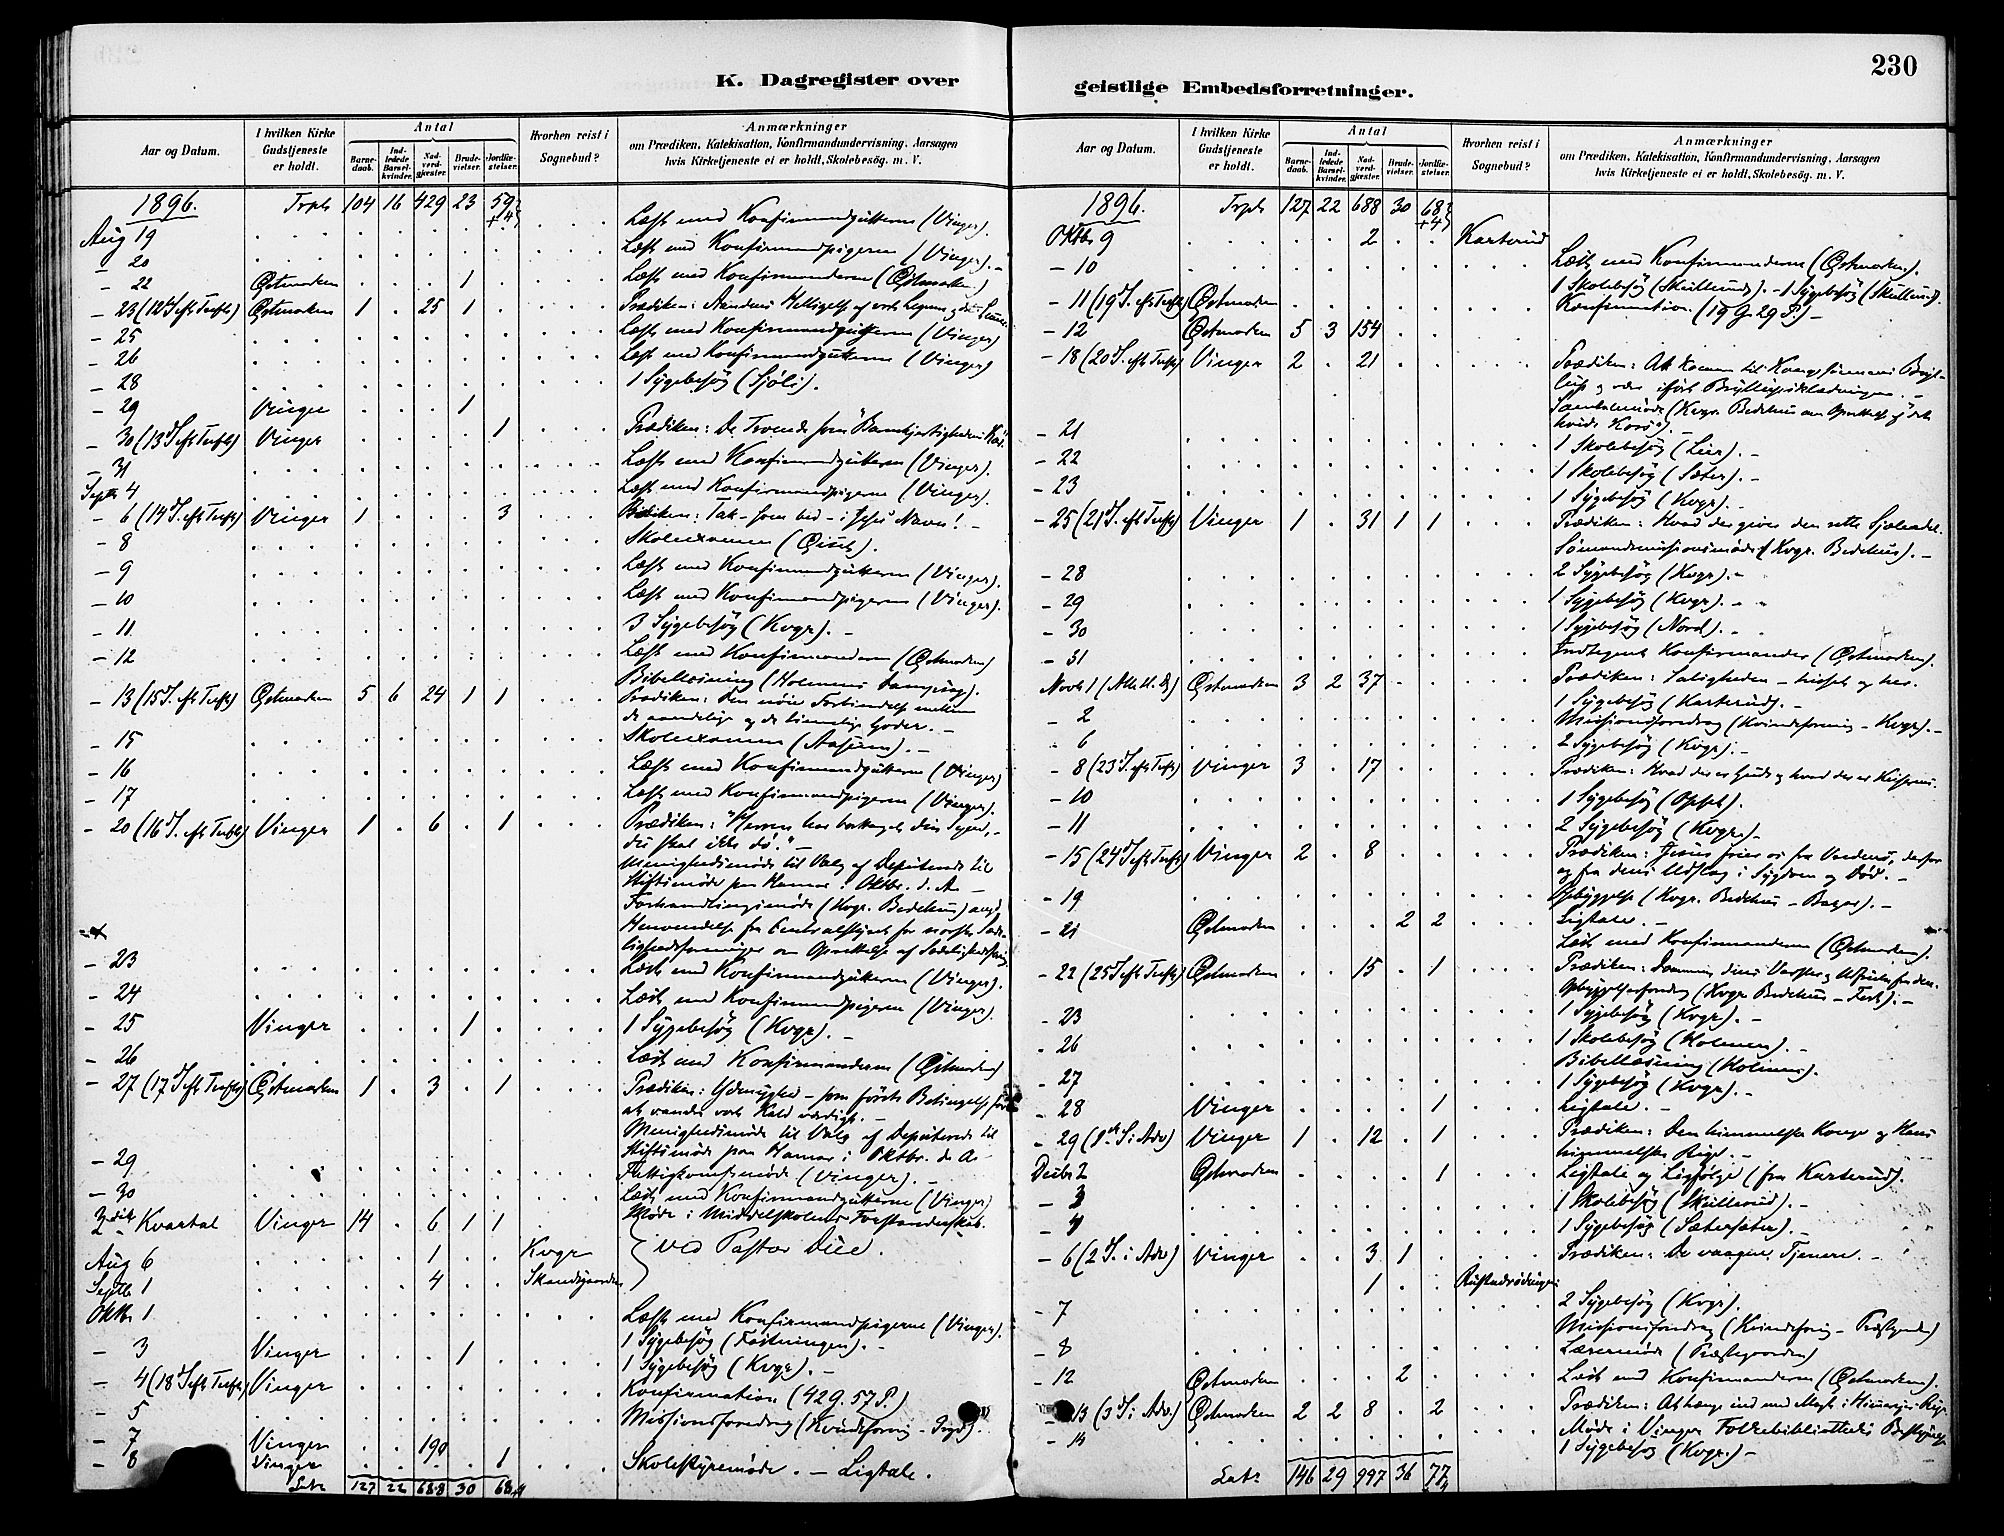 230
K. Dagregister over
geistlige Embedsforretninger.
Aar og Datum.
I hvilken Kirke Gudstjeneste er holdt.
Antal
Barnedaab.
Indledede Barselkvinder.
Nadverdgjæster.
Brudevielser.
Jordfæstelser.
Hvorhen reist i Sognebud?
Anmærkninger
om Prædiken, Katekisation, Konfirmandundervisning, Aarsagen
hvis Kirketjeneste ei er holdt, Skolebesøg. m. V.
1896. Trpt 104 16 429 23 59 +4
Aug 19 Læst med Konfirmandgutterne (Vinger).
- 20 Læst med Konfirmandpigerne (Vinger). -
- 22 Østmarken 1 Læst med Konfirmanderne (Østmarken)
- 23 (12 S. eft. Trefts) Østmarken 1 25 1 Prædiken: Aandens Helligelse af vort Legeme og
- 25 Læst med Konfirmandgutterne (Vinger)
- 26 Læst med Konfirmandgutterne (Vinger)
- 28 1 Sygebesøg (Sjøli).
- 29 Vinger 1
- 30 (13 S. eft Trefts) Vinger 1 Prædiken: De Troende som Barmhjertighedens
- 31 Læst med Konfirmandgutterne (Vinger).
Septb 4 Læst med Konfirmandpigerne (Vinger).
- 6 (14 S. eft Trefts) Vinger 1 3 Tak - som bed - i Jesu Navn! -
- 8 Skolexamen
- 9 Læst med Konfirmandgutterne (Vinger).
- 10 Læst med Konfirmandpigerne (Vinger).
- 11 3 Sygebesøg (Kvgr). -
- 12 Læst med Konfirmanderne (Østmarken)
Bibellæsning (Holmens
- 13 (15 S. eft Trefts) Østmarken 5 6 24 1 1 Prædiken: Den nøie Forbindelse mellem
de aandelige og de timelige Goder. -
- 15 Skolexamen (Aasum). -
- 16 Læst med Konfirmandgutterne (Vinger)
- 17 Læst med Konfirmandpigerne (Vinger).
- 20 (16 S. eft Trefts) Vinger 1 6 1 Prædiken: "Herren har borttaget din Synd, -
du skal ikke dø." -
Menighedsmøde til Valg af Deputerede til
Stiftsmøde paa Hamar i Oktbr. d. A -
Forhandlingsmøde (Kvgr. Bedehus) ang.
Henvendelse fra Centralstyret for norske Sæde-
lighedsforeninger om Oprettelse af
- 23 Læst med Konfirmandgutterne (Vinger).
- 24 Læst med Konfirmandpigerne (Vinger).
- 25 Vinger 1 1 Sygebesøg (Kvgr). -
- 26 Læst med Konfirmanderne (Østmarken)
- 27 (17 S. eft Trefts) Østmarken 1 3 1 Prædiken: Ydmyghed - som første Betingelse for
at vandre vort Kald værdigt. -
Menighedsmøde til Valg af Deputerede til
Stiftsmøde paa Hamar i Oktbr. d. A -
- 29 Fattigkomsmøde (Vinger). -
- 30 Læst med Konfirmandgutterne (Vinger)
Møde i Middelskolens Forstanderskab.
3die Kvartal Vinger 14 6 1 1
Aug 6 1 Kvgr
Septb 1 4 Skandsgaarden
ved Pastor Due.
Oktbr 1 Læst med Konfirmandpigerne (Vinger).
1 Sygebesøg (Fæstningen). -
- 3 Vinger 1 1 Sygebesøg (Kvgr). -
- 4 (18 S. eft Trefts) Vinger Konfirmation (42 G. 57 P.)
- 5 Missionsforedrag
- 7 Vinger 190
- 8 Vinger 1 Skolestyremøde. - Ligtale.
Lat: 127 22 688 30 68
Aar og Datum.
I hvilken Kirke Gudstjeneste er holdt.
Antal
Barnedaab.
Indledede Barselkvinder.
Nadverdgjæster.
Brudevielser.
Jordfæstelser.
Hvorhen reist i Sognebud?
Anmærkninger
om Prædiken, Katekisation, Konfirmandundervisning, Aarsagen
hvis Kirketjeneste ei er holdt, Skolebesøg. m. V.
1896. Trpt 127 22 688 30 68 +4
Oktbr 9 2 Karterud
- 10 Læst med Konfirmanderne (Østmarken).
1 Skolebesøg (Skullerud). - 1 Sygebesøg (Skullerud).
- 11 (19 S. eft Trefts) Østmarken Konfirmation (19 G. 29 P.) -
- 12 Østmarken 5 3 154
- 18 (20 S. eft Trefts) Vinger 2 21 Prædiken: At komme til Kongesønnens Bryl-
lup og være iført Bryllupsklædningen. -
Samtalemøde (Kvgr. Bedehus om Oprettelse af det
hvide Kors). -
- 21 1 Skolebesøg (Lier). -
- 22 1 Skolebesøg (Sæter). -
- 23 1 Sygebesøg (Kvgr). -
- 25 (21 S. eft Trefts) Vinger 1 31 1 1 Prædiken: Hvad der giver den rette
Sømandsmissionsmøde (Kvgr. Bedehus). -
- 28 2 Sygebesøg (Kvgr). -
- 29 1 Sygebesøg (Kvgr). -
- 30 1 Sygebesøg (Nord). -
- 31 Indtegnet Konfirmander (Østmarken).
Novb 1 (Alle H. D) Østmarken 3 2 37 Prædiken: Saligheden - hisset og her.
1 Sygebesøg (Karterud). -
- 2 Missionsforedrag (Kvindeforening - Kvgr). -
- 6 2 Sygebesøg (Kvgr). -
- 8 (23 S. eft Trefts) Vinger 3 17 Prædiken: Hvad der er Guds og hvad der er Keiserens.
- 10 1 Sygebesøg
- 11 2 Sygebesøg (Kvgr.) -
- 15 (24 S. eft Trefts) Vinger 2 8 Prædiken: Jesus frier os fra Verdens
og fra dens Udslag i Sygdom og Død. -
- 19 Opbyggelse (Kvgr. Bedehus - Bazar). -
- 21 Østmarken 2 2 Ligtale. -
Læst med Konfirmanderne (Østmarken).
- 22 (25 S. eft Trefts) Østmarken 15 1 Prædiken: Dommen, dens Varsler og
Opbyggelsesforedrag (Kvgr. Bedehus - Fest). -
- 23 1 Sygebesøg (Kvgr). -
- 26 1 Skolebesøg (Holmen). -
Bibellæsning (Holmen).
- 27 1 Sygebesøg (Kvgr). -
- 28 Vinger 1 Ligtale. -
- 29 (1ste S. i Adv) Vinger 1 12 1 Prædiken: Den himmelske Konge og Hans
himmelske Rige. -
Decbr 2 Østmarken 1 Ligtale og Ligfølge (fra Karterud).
- 3 1 Skolebesøg (Skullerud). -
- 4 1 Sygebesøg (Sætersæter). -
- 6 (2 S. i Adv) Vinger 3 1 Prædiken: De vaagne Tjenere. -
1
- 7 2 Sygebesøg (Kvgr).
Missionsforedrag
- 8 Lærermøde (Præstegaarden)
- 12 Østmarken 2 Læst med Konfirmanderne (Østmarken).
- 13 (3 S. i Adv.) Østmarken 2 2 8 2 Prædiken: At trænge ind med Magt i Himmeriges Rige.
- 14 Møde i Vinger Folkebiblioteks Bestyrelse
1 Sygebesøg (Kvgr.) -
Lat: 146 29 997 36 77